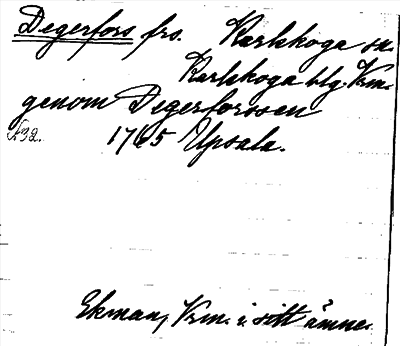 Degerfors frs. Karlskoga sn.
Karlskoga blg. Vrm.
genom Degerforssen
1765 Upsala.
Ekman, Vrm. i sitt ämne.